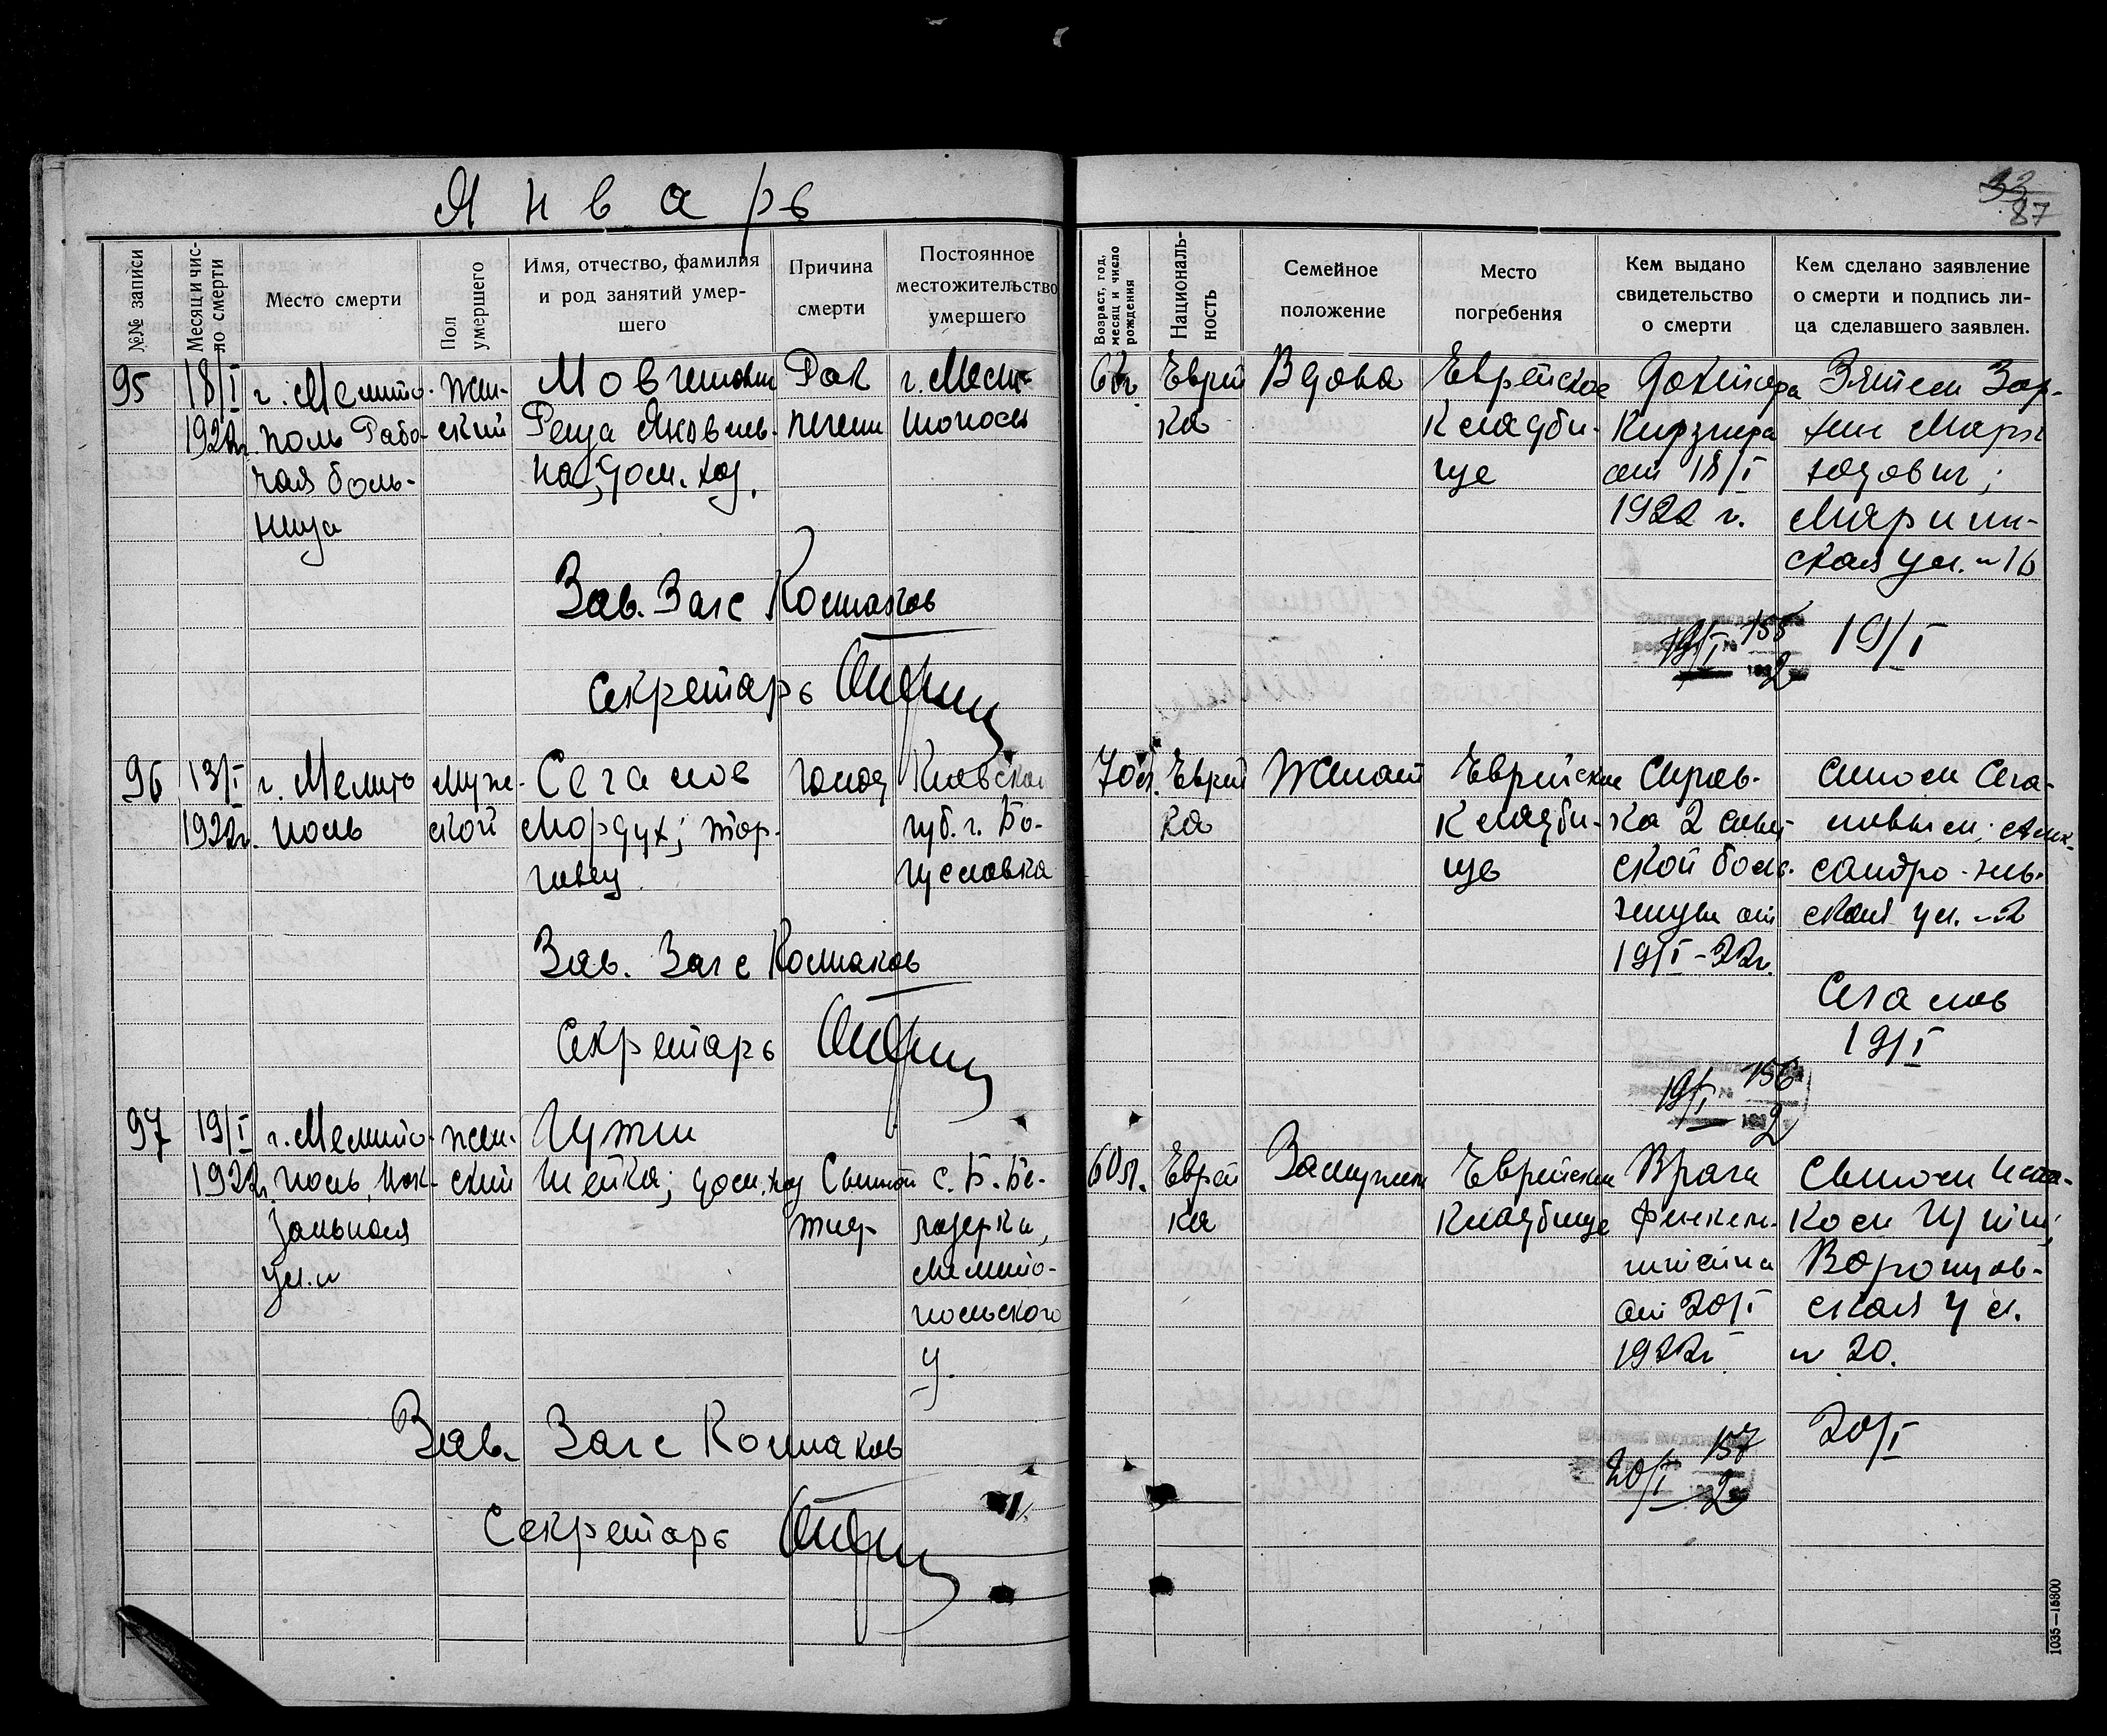 Январь
33
87
№№ записи
Месяц и чис-
ло смерти
Место смерти
Пол
умершего
Имя, отчество, фамилия
и род занятий умер-
шего
Причина
смерти
Постоянное
местожительство
умершего
Возраст, год,
месяц и число
рождения
Националь-
ность
Семейное
положение
Место
погребения
Кем выдано
свидетельство
о смерти
Кем сделано заявление
о смерти и подпись ли-
ца сделавшего заявлен.
95
18/I
1922г.
г. Мелито-
поль Рабо-
чая боль-
ница
жен-
ский
Рейза Яковлев-
на, дом. хоз.
Рак
печени
г. Мели-
тополь
Еврей
ка
Вдова
Еврейское
Кладби-
ще
Доктора
от 18/I
1922 г.
Зятем
Мариин-
ская ул. № 16
Зав. Загс Колпаков
Секретарь
19/I 155
2
19/I
96
13/I
1922г.
г. Мелито
поль
муж-
ской
Сегалов
Мордух; тор-
говец
голод
Киевской
губ. г. Бо-
гуславка
70л.
Еврей
ка
Женат
Еврейское
Кладби-
ще
Справ-
ка 2 Совет-
ской боль-
ницы от
19/I-22г.
Сыном Сега-
ловым; Алек-
сандро-Нев-
ская ул. № 2
Сегалов
19/I
Зав. Загс Колпаков
Секретарь
19/I 156
2
97
19/I
1922г.
г. Мелито-
поль, Вок-
зальная
ул. №
жен-
ский
Шейка; дом. хоз
Сыпной
тиф
с. Б. Бе-
лозерки,
Мелито-
польского
у.
60л.
Еврей
ка
Замужем
Еврейское
Кладбище
Врача
Финкель-
штейна
от 20/I
1922г
Сыном Иса-
ком
Воронцов-
ская ул.
№ 20.
20/I
Зав. Загс Колпаков
Секретарь
20/I 157
2
1035—15800